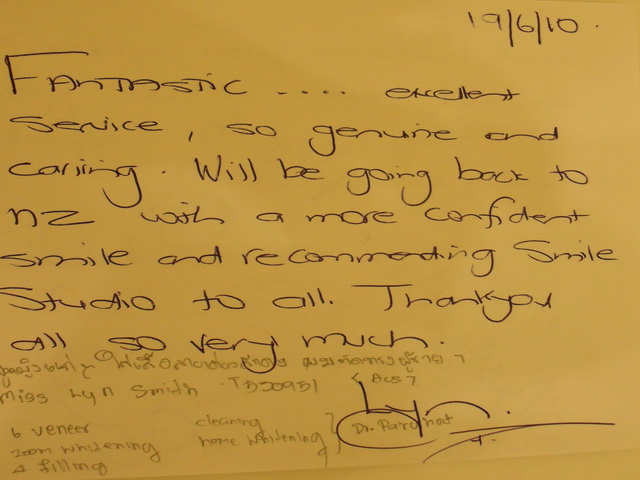 19/6/10.
FANTASTIC .... excellent
service, so genuine and
cariing. Will be going back to
NZ with a more confident
smile and recommending Smile
Studio to all. Thankyou
all so very much.
Miss Lyn Smith T550951
6 veneer cleaning
zoom whitening home whitening
4 filling